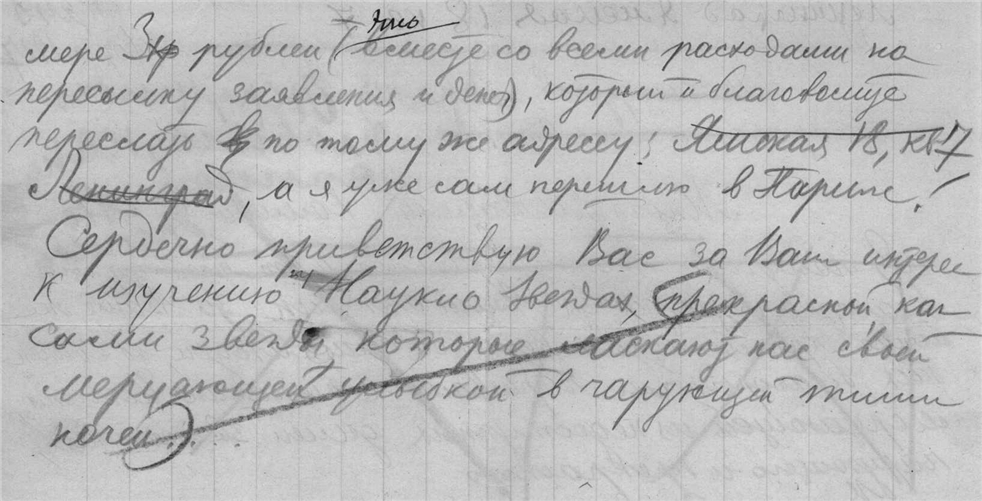 это
мере 3 р рублей (вместе со всеми расходами на
пересылку заявления и денег), который и благоволите
переслать по тому же адрессу: Ямская 18, кв 7
Ленинград, а я уже сам перешлю в Париж!
Сердечно приветствую Вас за Ваш интерес
к изучению Науки о Звездах, (прекрасной, как
сами звезды которые ласкают нас своей
мерцающей улыбкой в чарующей тиши
ночей.)...